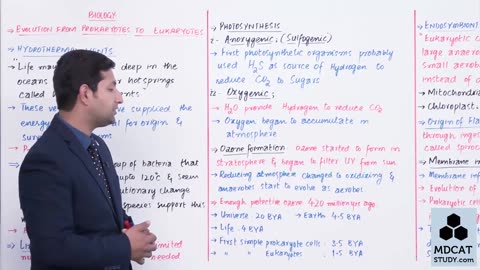 BIOLOGY
→ EVOLUTION FROM PROKARYOTES TO EUKARYOTES
→ HYDROTHERMAL VENTS
"Life may deep in the
oceans hot springs
called
→ These supplied the
energy for origin &
up of bacteria that
upto 120°C & seem
tionary change
species support this
limited
needed
→ PHOTOSYNTHESIS
i- Anoxygenic; (Sulfogenic)
→ First photosynthetic organisms probably
used H2S as source of Hydrogen to
reduce CO2 to Sugars
ii- Oxygenic;
→ H2O provide Hydrogen to reduce CO2
→ Oxygen began to accumulate in
atmosphere
→ Ozone formation ozone started to form in
stratosphere & began to filter UV from sun
→ Reducing atmosphere changed to oxidizing &
anaerobes start to evolve as aerobes
→ Enough protective ozone 420 million yrs ago
→ Universe 20 BYA → Earth 4.5 BYA
→ Life : 4 BYA
→ First simple prokaryote cells : 3.5 BYA
→ " " Eukaryotes : 1.5 BYA
ENDOSYMBIONT
"Eukaryotic c
large anaero
Small aerob
instead of d
→ Mitochondri
→ Chloroplast
→ Origin of Fla
through inges
called spiroc
→ Membrane in
Membrane inf
→ Evolution of
→ Prokaryotic c
MDCAT
STUDY.com